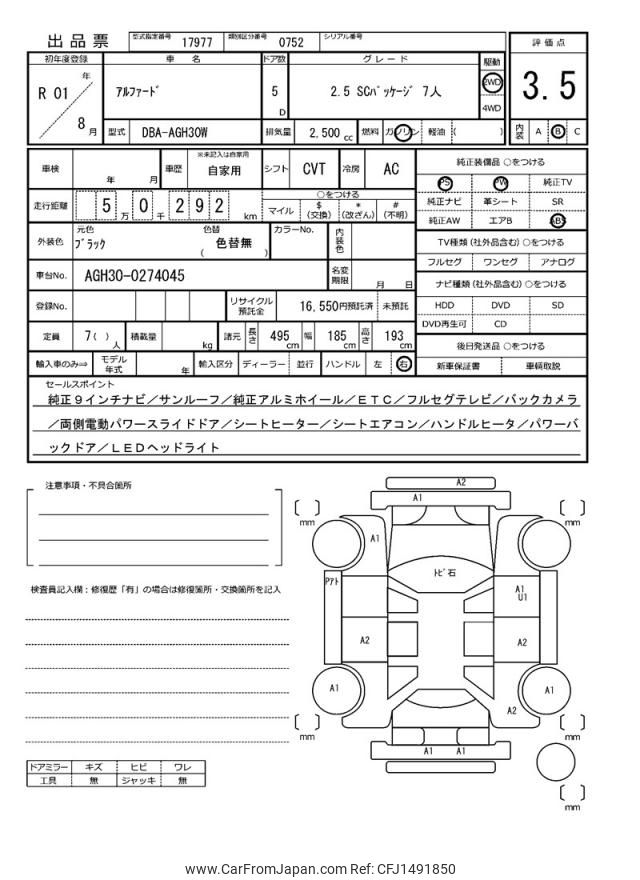 出品票 型式指定番号 17977 類別区分番号 0752 シリアル番号
初年度登録 車名 ドア数 グレード 駆動 評価点
R 01 年 8 月
アルファード 5 D 2.5 SCパッケージ 7人 2WD 4WD 3.5
型式 DBA-AGH30W 排気量 2,500 cc 燃料 ガソリン 軽油 ( ) 内装 A B C
車検 年 月 車歴 ※未記入は自家用 自家用 シフト CVT 冷房 AC
純正装備品 ○をつける
PS PW 純正TV
純正ナビ 革シート SR
純正AW エアB ABS
走行距離 5 万 0 千 2 9 2 km
○をつける
マイル $ (交換) * (改ざん) # (不明)
外装色 元色 ブラック 色替 色替無 ( ) カラーNo. 内装色
TV種類 (社外品含む) ○をつける
フルセグ ワンセグ アナログ
車台No. AGH30-0274045 名変期限 月 日
ナビ種類 (社外品含む) ○をつける
HDD DVD SD
DVD再生可 CD
登録No. リサイクル預託金 16,550円預託済 未預託
定員 7( ) 人 積載量 kg 諸元 長さ 495 cm 幅 185 cm 高さ 193 cm
後日発送品 ○をつける
新車保証書 車輌取説
輸入車のみ⇒ モデル年式 年 輸入区分 ディーラー 並行 ハンドル 左 右
セールスポイント
純正９インチナビ／サンルーフ／純正アルミホイール／ＥＴＣ／フルセグテレビ／バックカメラ
／両側電動パワースライドドア／シートヒーター／シートエアコン／ハンドルヒータ／パワーバ
ックドア／ＬＥＤヘッドライト
注意事項・不具合箇所
検査員記入欄：修復歴「有」の場合は修復箇所・交換箇所を記入
A2
A1
[ ] mm
[ ] mm
A1
トビ石
Pアト
A1
U1
A2
A2
A1
A1
A2
[ ] mm
[ ] mm
A1 A1
[ ] mm
ドアミラー キズ ヒビ ワレ
工具 無 ジャッキ 無
www.CarFromJapan.com Ref: CFJ1491850